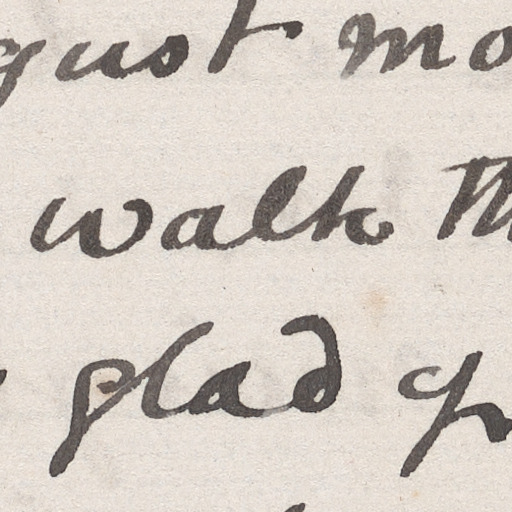 gust mo
walk th
glad yo